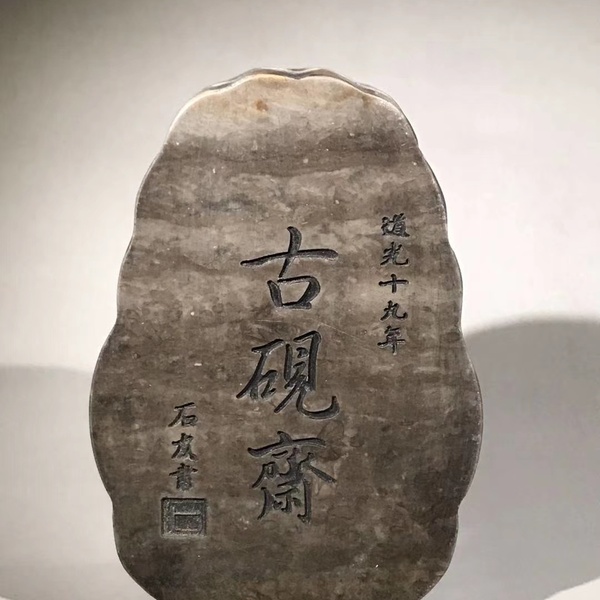 道光十九年
古硯齋
石友書